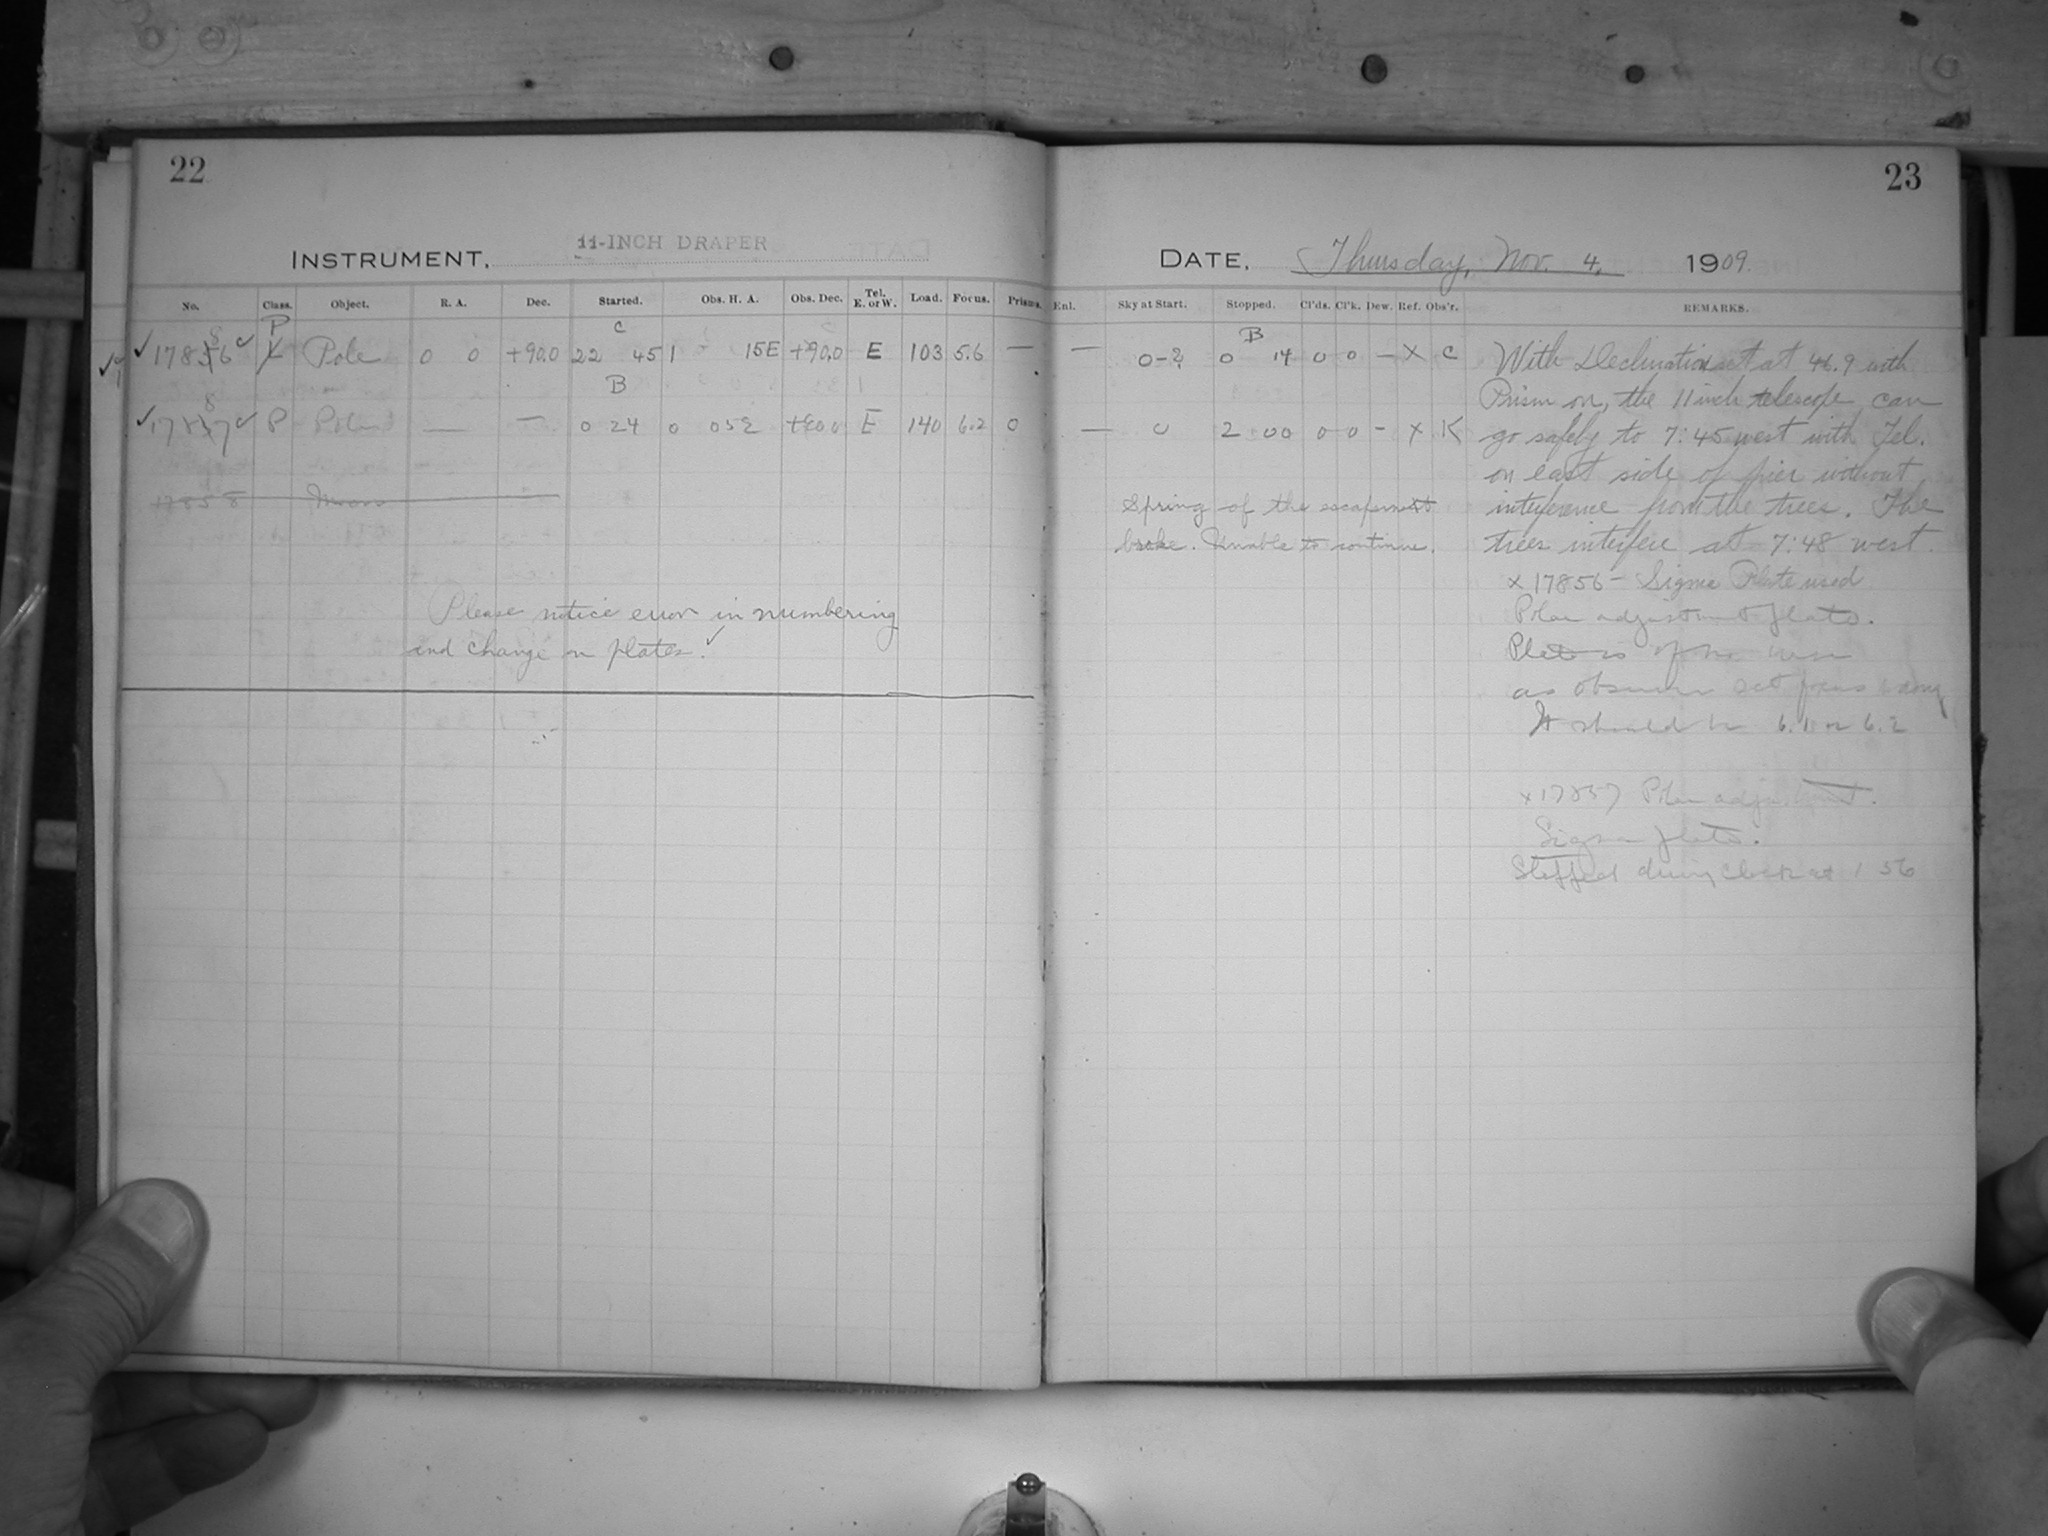 22
INSTRUMENT, 11-INCH DRAPER
No. Class. Object. R. A. Dec. Started. Obs. H. A. Obs. Dec. Tel. E. or W. Load. Focus. Prisms.
P C
8
✓ 17856 ✓ Pole 0 0 +90.0 22 45 1 15E +90.0 E 103 5.6 —
B
8
✓ 17857 ✓ P Pole — — 0 24 0 05E +90.0 E 140 6.2 0
17858 Moon
Please notice error in numbering
and change on plates. ✓
23
DATE, Thursday, Nov. 4, 1909.
Enl. Sky at Start. Stopped. Cl'ds. Cl'k. Dew. Ref. Obs'r. REMARKS.
B
— 0-2 0 14 0 0 — X C
— 0 2 00 0 0 – X K
Spring of the escapement
broke. Unable to continue.
With Declination set at 46.9 with
Prism on, the 11 inch telescope can
go safely to 7:45 west with Tel.
on east side of pier without
interference from the trees. The
trees interfere at 7:48 west.
x 17856 – Sigma Plate used
Polar adjustment plate.
Plate is of no
as observer set focus wrong
It should be 6.1 or 6.2
x 17857 Polar adjustment.
Sigma plate.
Stopped driving clock at 1 56